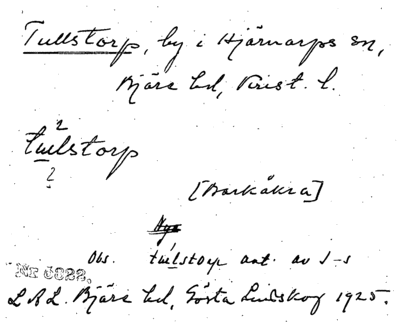 Tullstorp, by i Hjärnarps sn,
Bjäre hd, Krist. l.
2
tulstorp
2
[Barkåkra]
Obs. tulstorp ant. av J-s
Nr 6822.
L A L. Bjäre hd, Gösta Lindskog 1925.